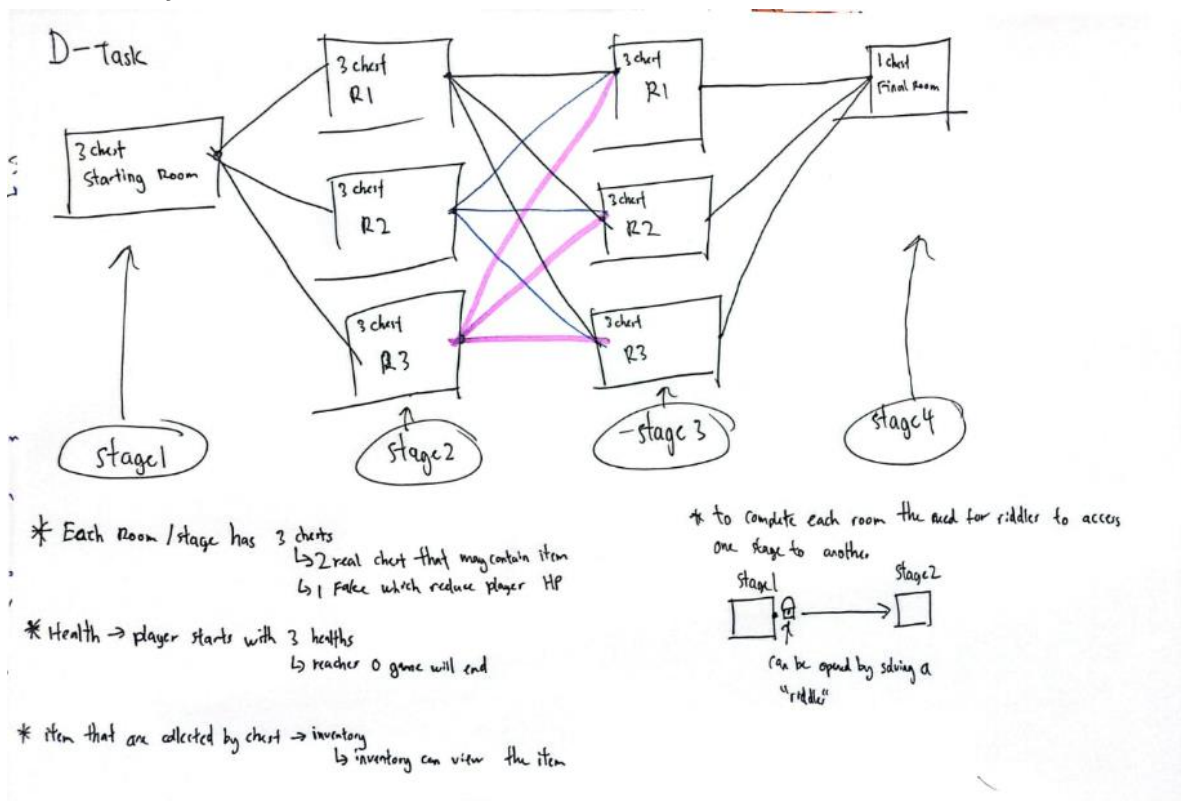 D-Task
3 chest
Starting Room
3 chest
R1
3 chest
R2
3 chest
R3
3 chest
R1
3 chest
R2
3 chest
R3
1 chest
Final Room
stage1
stage2
stage 3
stage4
* Each Room / stage has 3 chests
↳ 2 real chest that may contain item
↳ 1 False which reduce player HP
* Health → player starts with 3 healths
↳ reaches 0 game will end
* item that are collected by chest → inventory
↳ inventory can view the item
* to complete each room the need for riddles to access
one stage to another
Stage1
Stage2
Can be opend by solving a
"riddle"